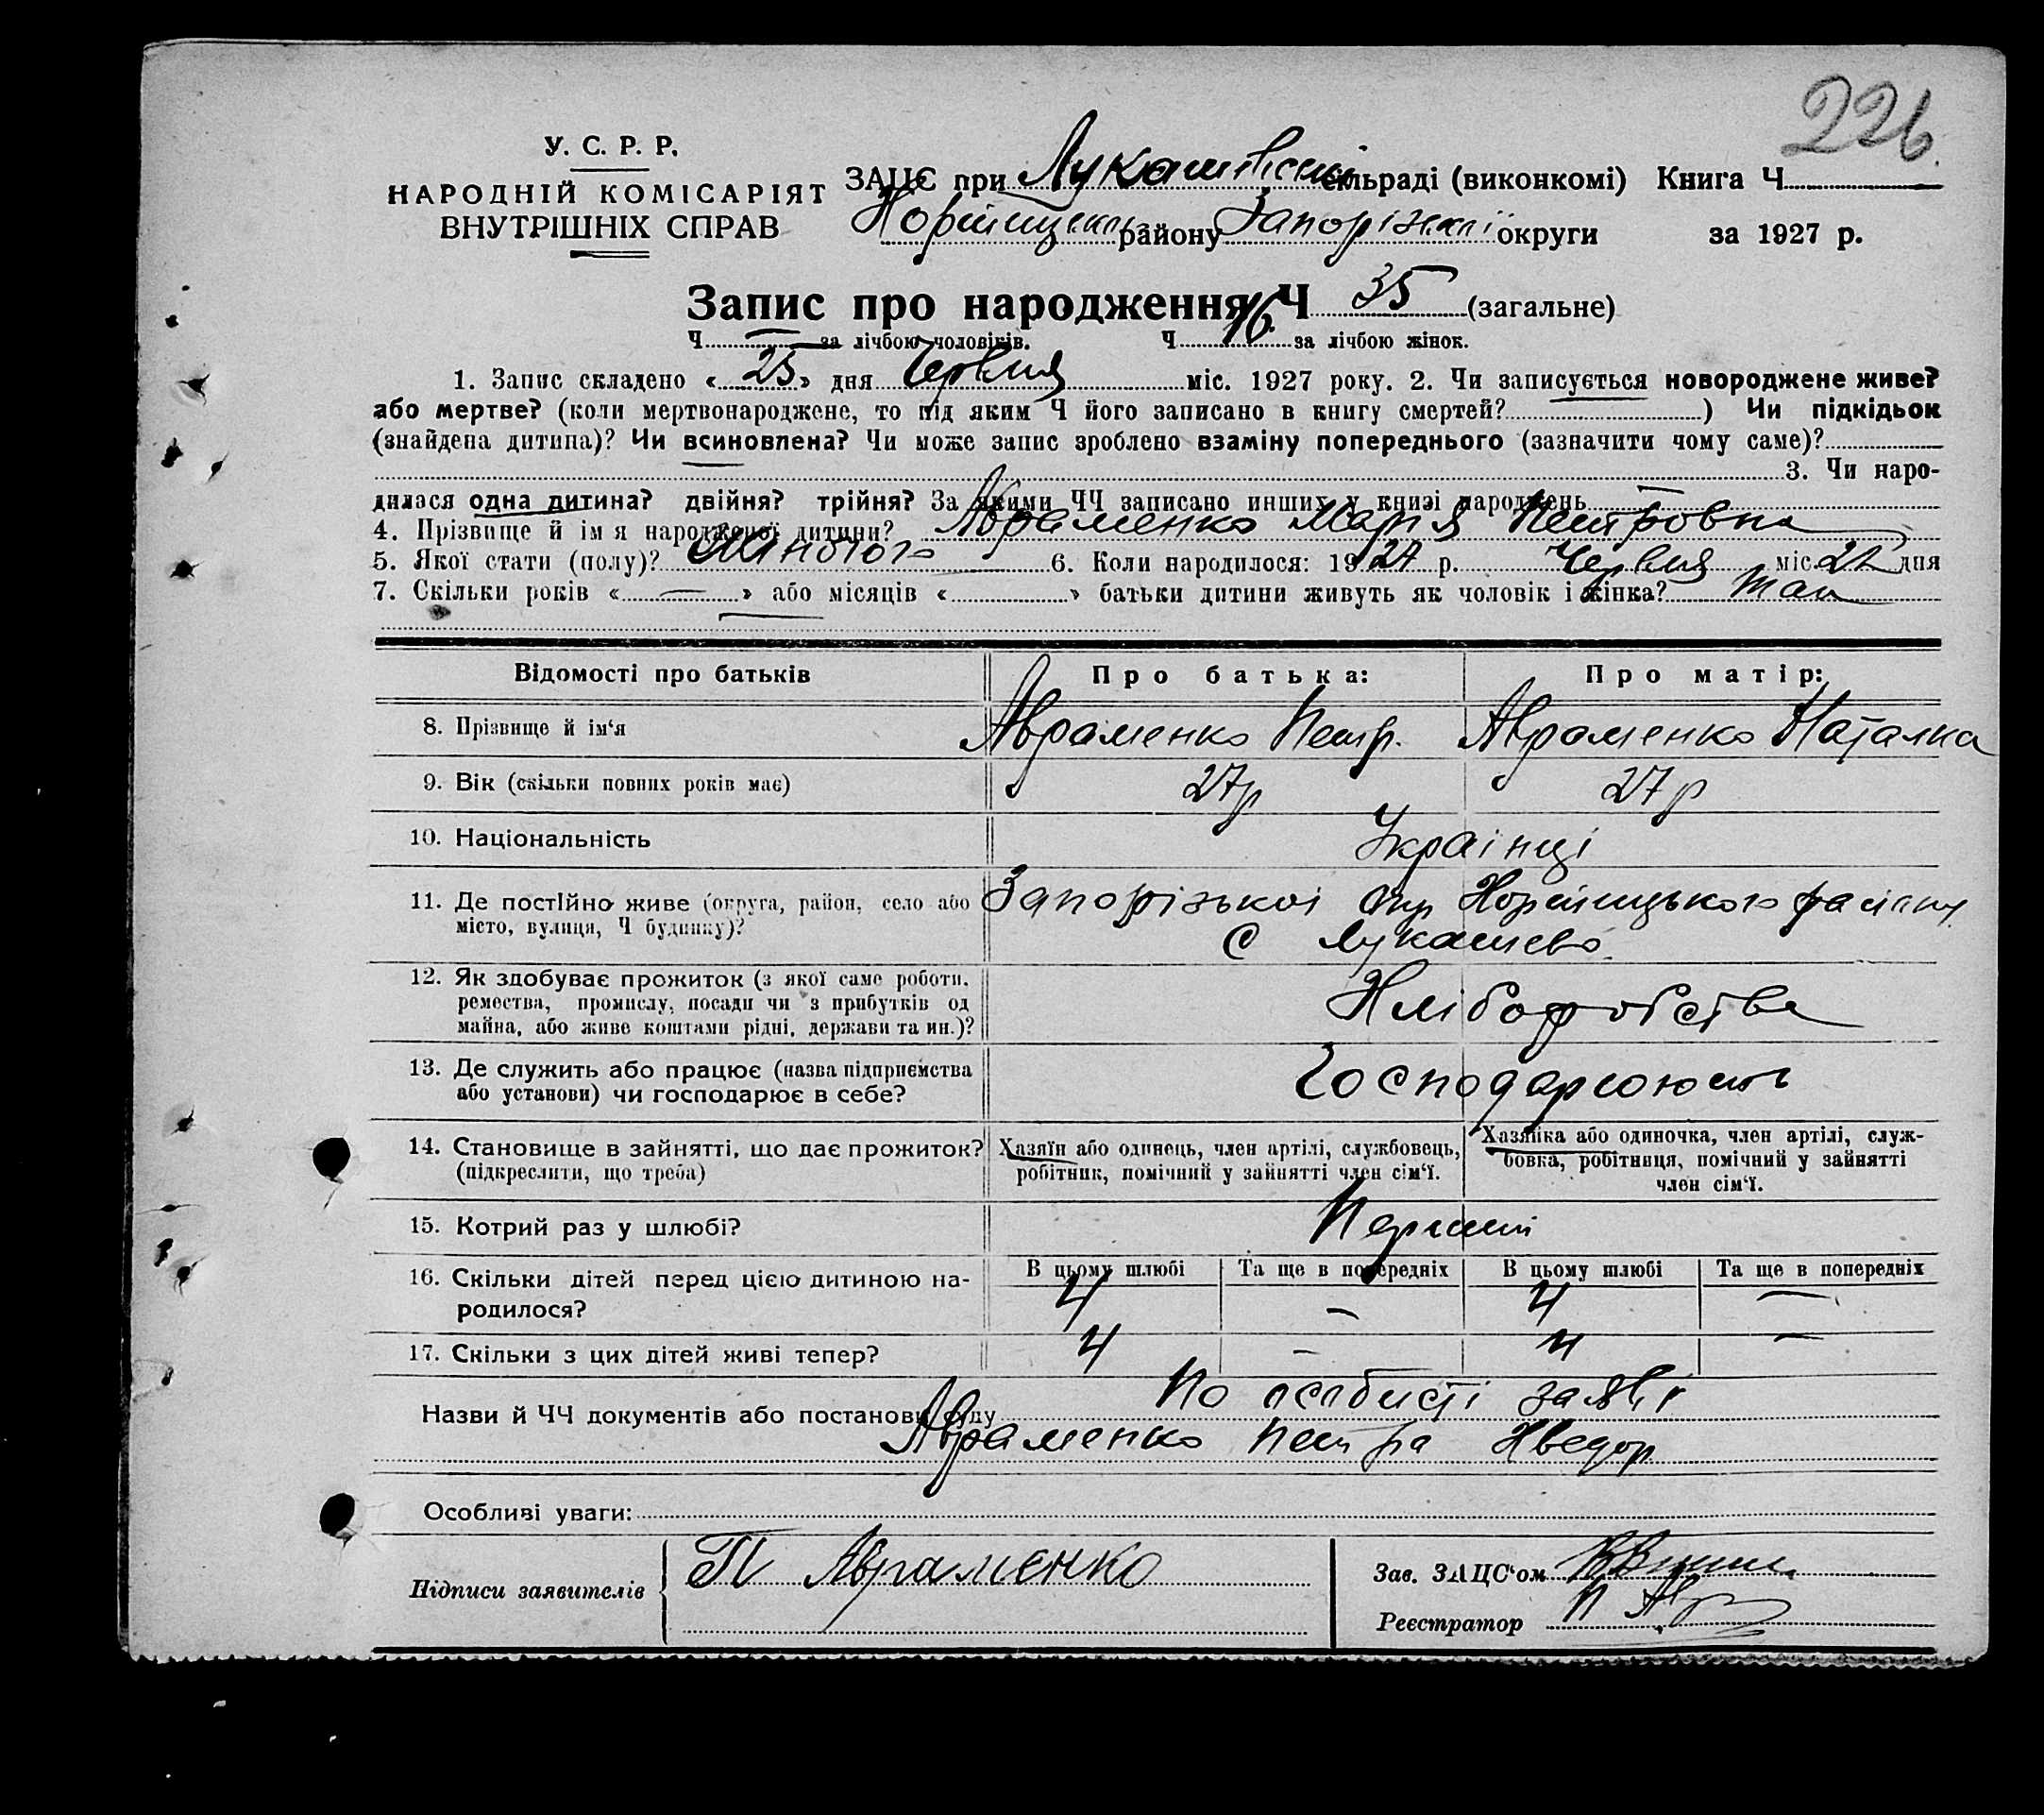 226.
У. С. Р. Р.
НАРОДНІЙ КОМІСАРІЯТ
ВНУТРІШНІХ СПРАВ
ЗАЦС при Лукашівській сільраді (виконкомі) Книга Ч
району Запорізької округи за 1927 р.
Запис про народження Ч 35 (загальне)
Ч — за лічбою чоловіків. Ч 16. за лічбою жінок.
1. Запис складено « 25 » дня Червня міс. 1927 року. 2. Чи записується новороджене живе?
або мертве? (коли мертвонароджене, то під яким Ч його записано в книгу смертей? ) Чи підкідьок
(знайдена дитина)? Чи всиновлена? Чи може запис зроблено взаміну попереднього (зазначити чому саме)?
3. Чи наро-
дилася одна дитина? двійня? трійня? За якими ЧЧ записано инших у книзі народжень —
4. Прізвище й ім я народженої дитини? Авраменко Марія Петровна
5. Якої стати (полу)? Жіночого 6. Коли народилося: 1927 р. Червня міс. 22 дня
7. Скільки років « — » або місяців « » батьки дитини живуть як чоловік і жінка? Так
Відомості про батьків Про батька: Про матір:
8. Прізвище й ім‘я Авраменко Петр. Авраменко Наталка
9. Вік (скільки повних років має) 27р 27р
10. Національність Українці
11. Де постійно живе (округа, район, село або Запорізької окр района
місто, вулиця, Ч будинку)? С Лукашево.
12. Як здобуває прожиток (з якої саме роботи, Хліборобство
ремества, промислу, посади чи з прибутків од
майна, або живе коштами рідні, держави та ин.)?
13. Де служить або працює (назва підприємства Господарюють
або установи) чи господарює в себе?
14. Становище в зайнятті, що дає прожиток? Хазяїн або одинець, член артілі, службовець, Хазяйка або одиночка, член артілі, служ-
(підкреслити, що треба) робітник, помічний у зайнятті член сім‘ї. бовка, робітниця, помічний у зайнятті
член сім‘ї.
15. Котрий раз у шлюбі? Перший
16. Скільки дітей перед цією дитиною на- В цьому шлюбі Та ще в попередніх В цьому шлюбі Та ще в попередніх
родилося? 4 — 4 —
17. Скільки з цих дітей живі тепер? 4 — 4 —
Назви й ЧЧ документів або постанови суду По особисті заяві
Авраменко Петра Хведор
Особливі уваги:
Підписи заявителів П Авраменко
Зав. ЗАЦС‘ом
Реєстратор